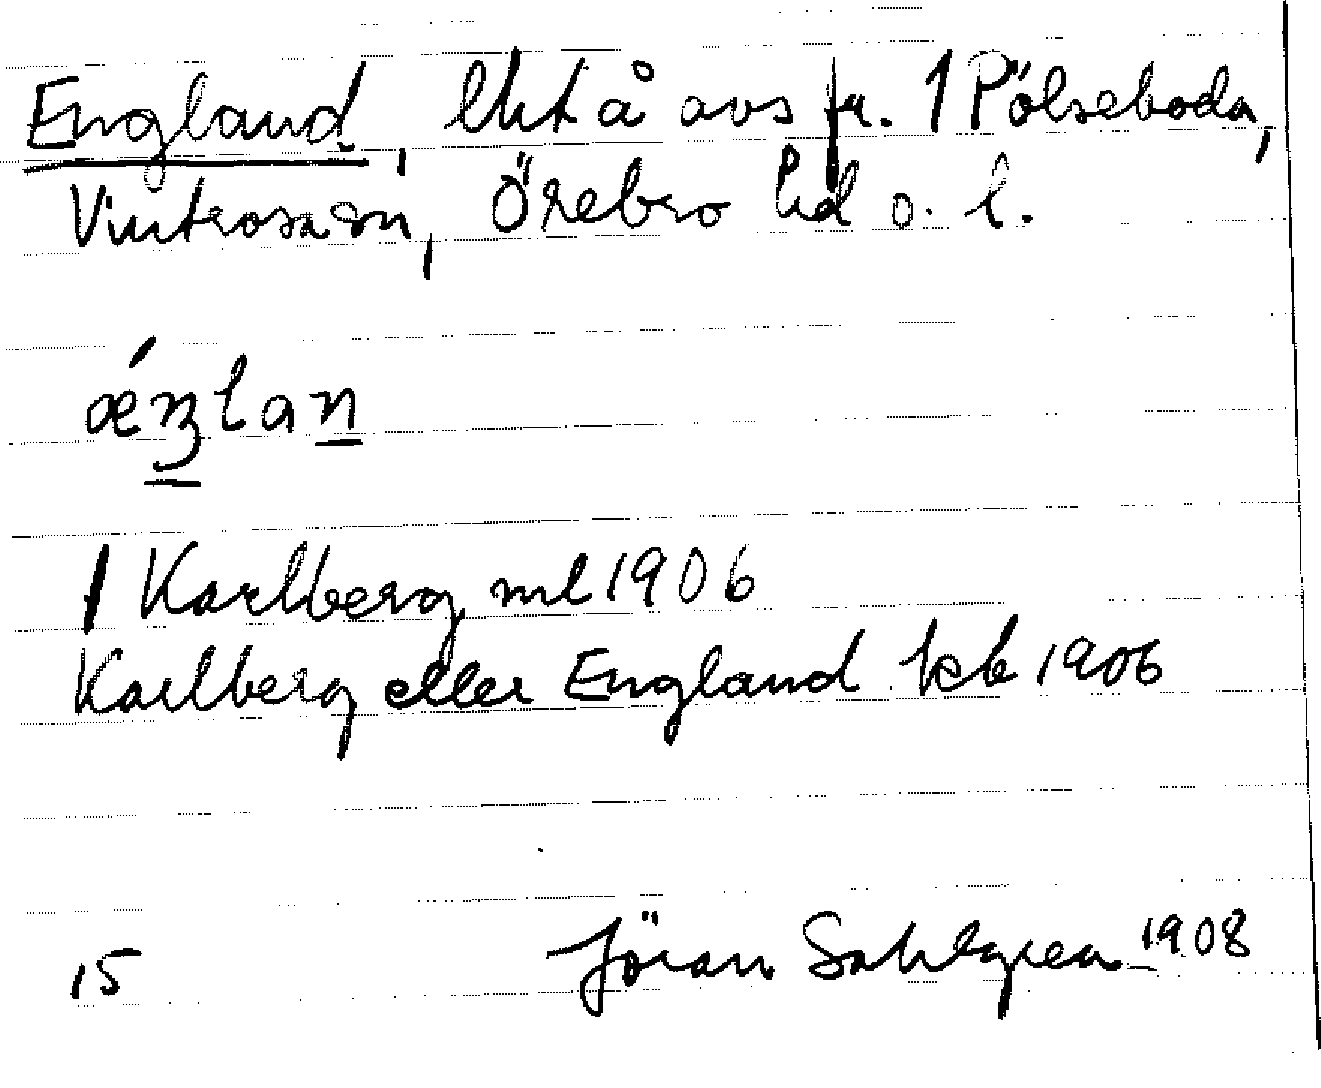 England, lht å avs fr. 1 Pölseboda,
Vintrosa sn, Örebro hd o. l.
ǽnglan
1 Karlberg ml 1906
Karlberg eller England kb 1906
15 Jöran Sahlgren 1908